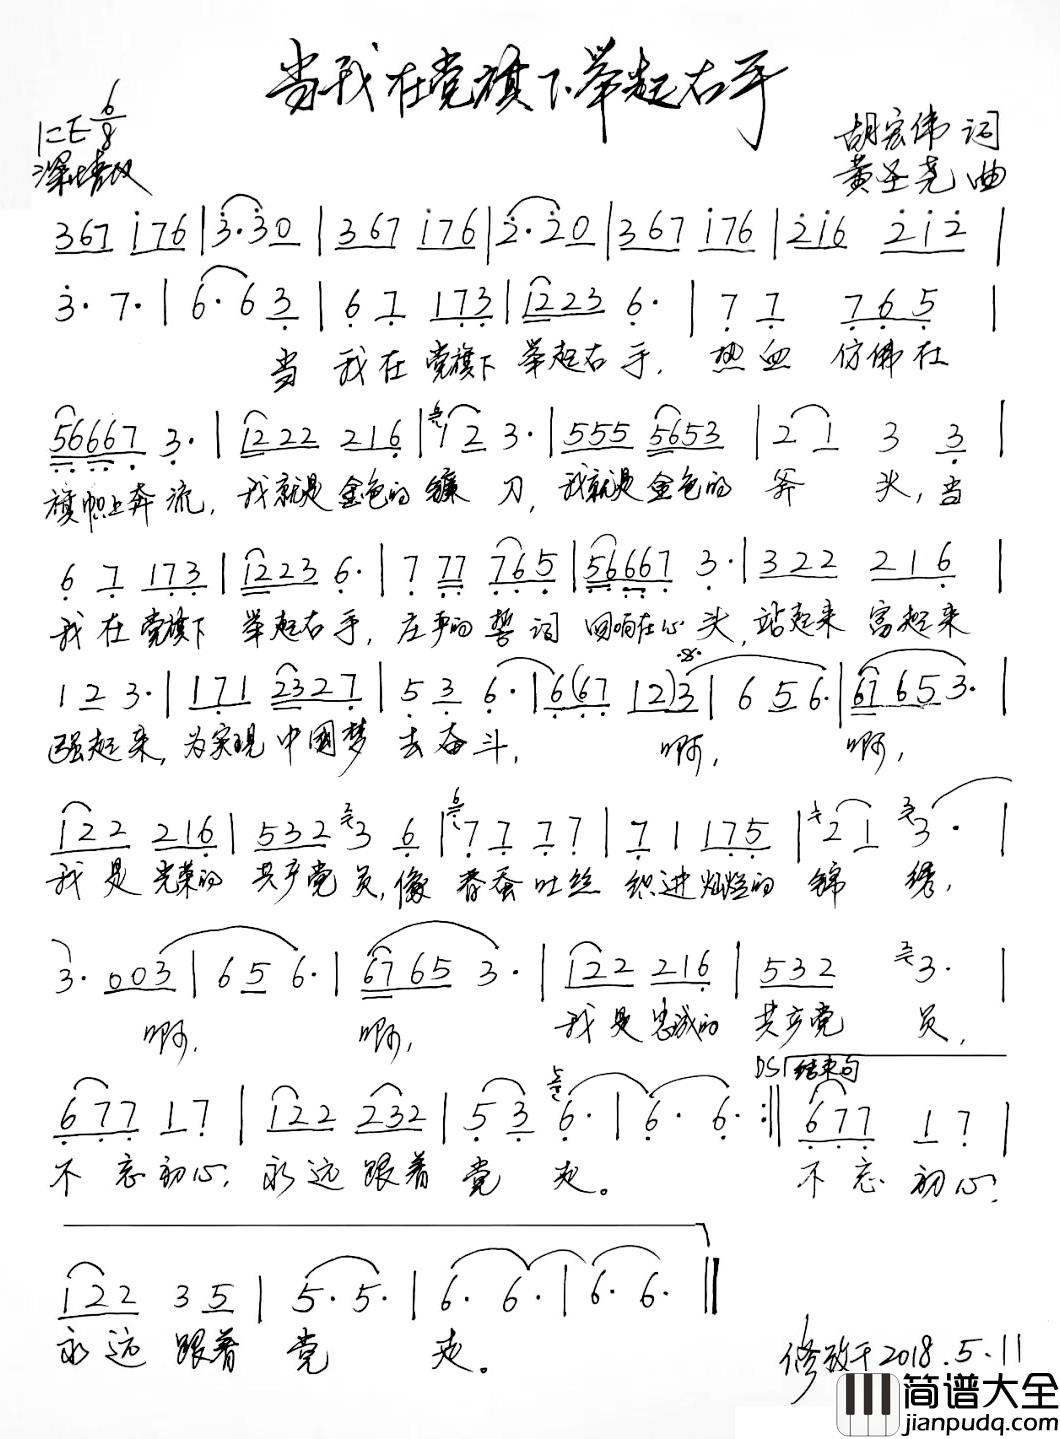 当我在党旗下举起右手
1=E 6/8
深情地
胡宏伟 词
黄圣尧 曲
367 i76 | 3·30 | 367 i76 | 2·20 | 367 i76 | 2i6 2i2 |
3· 7· | 6·6 3 | 6 7 173 | 1223 6· | 7 7 765 |
当 我在党旗下 举起右手, 热血 仿佛在
56667 3· | 1222 216 | 12 3· | 555 5653 | 2 1 3 3 |
旗帜上奔流, 我就是金色的镰 刀, 我就是金色的 斧 头, 当
6 7 173 | 1223 6· | 7 77 765 | 56667 3· | 322 216 |
我在党旗下 举起右手, 庄严的誓词 回响在心头, 站起来 富起来
1 2 3· | 171 2327 | 5 3 6· | 6(67 12)3 | 6 5 6· | 6765 3· |
强起来, 为实现 中国梦 去奋斗, 啊, 啊,
122 216 | 532 3 6 | 7 7 7 7 | 7 1 175 | 2 1 3· |
我是光荣的 共产党员, 像春蚕吐丝 织进灿烂的 锦 绣,
3· 003 | 6 5 6· | 6765 3· | 122 216 | 532 3· |
啊, 啊, 我是忠诚的 共产党 员,
DS 结束句
677 17 | 122 232 | 5 3 6· | 6· 6· :|| 677 1 7 |
不忘初心, 永远跟着 党 走。 不忘 初心,
122 3 5 | 5· 5· | 6· 6· | 6· 6· ||
永远 跟着 党 走。
修改于2018.5.11
简谱大全
jianpudq.com